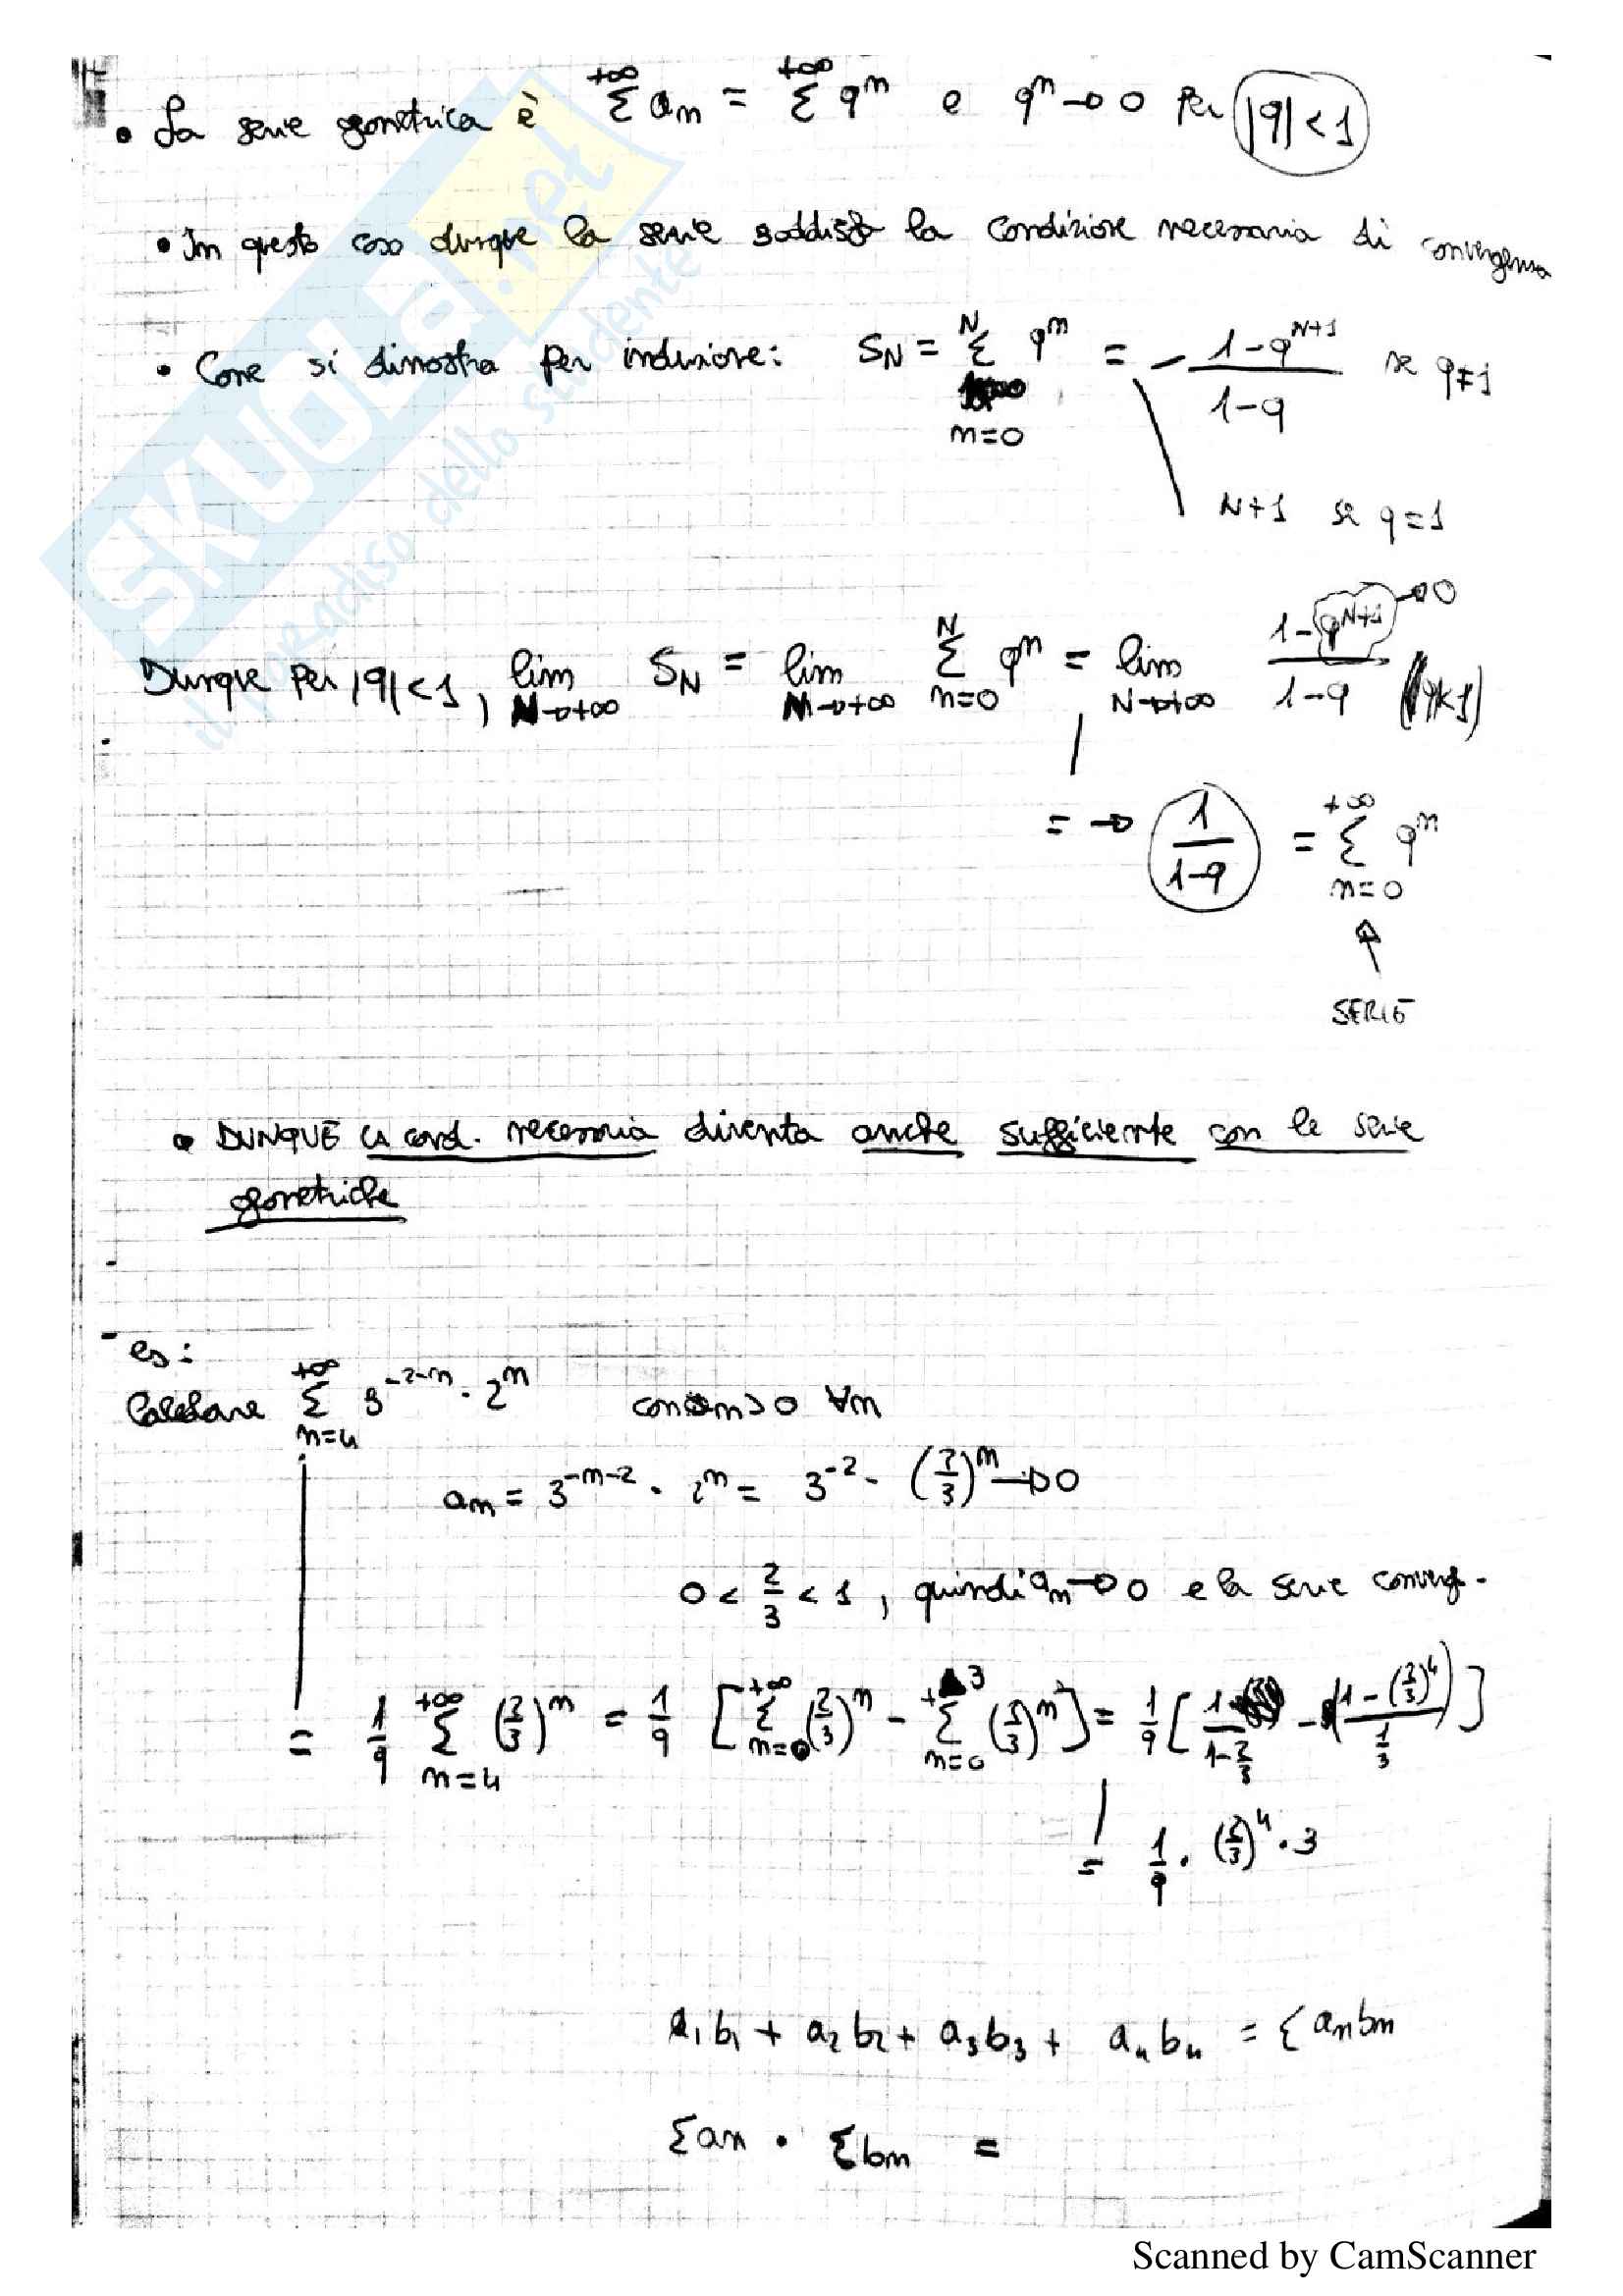 • La serie geometrica è +∞ Σ an = +∞ Σ q^n e q^n → 0 per |q| < 1
• In questo caso dunque la serie soddisfa la condizione necessaria di convergenza
• Come si dimostra per induzione: SN = N Σ n=0 q^n = 1-q^(N+1) / 1-q se q≠1
N+1 se q=1
Dunque per |q|<1, lim N→+∞ SN = lim N→+∞ N Σ n=0 q^n = lim N→+∞ 1-q^(N+1) / 1-q (|q|<1) → 0
= → 1 / 1-q = +∞ Σ n=0 q^n
SERIE
• DUNQUE la cond. necessaria diventa anche sufficiente con le serie
geometriche
es:
Calcolare +∞ Σ n=4 3^(-2-n) · 2^n con an>0 ∀n
an = 3^(-n-2) · 2^n = 3^(-2) · (2/3)^n → 0
0 < 2/3 < 1, quindi an → 0 e la serie converg.
= 1/9 +∞ Σ n=4 (2/3)^n = 1/9 [ +∞ Σ n=0 (2/3)^n - 3 Σ n=0 (2/3)^n ] = 1/9 [ 1 / 1-2/3 - (1-(2/3)^4 / 1/3) ]
= 1/9 · (2/3)^4 · 3
a1b1 + a2b2 + a3b3 + a4b4 = Σ anbn
Σan · Σbn =
SKUOLA.net
il paradiso dello studente
Scanned by CamScanner